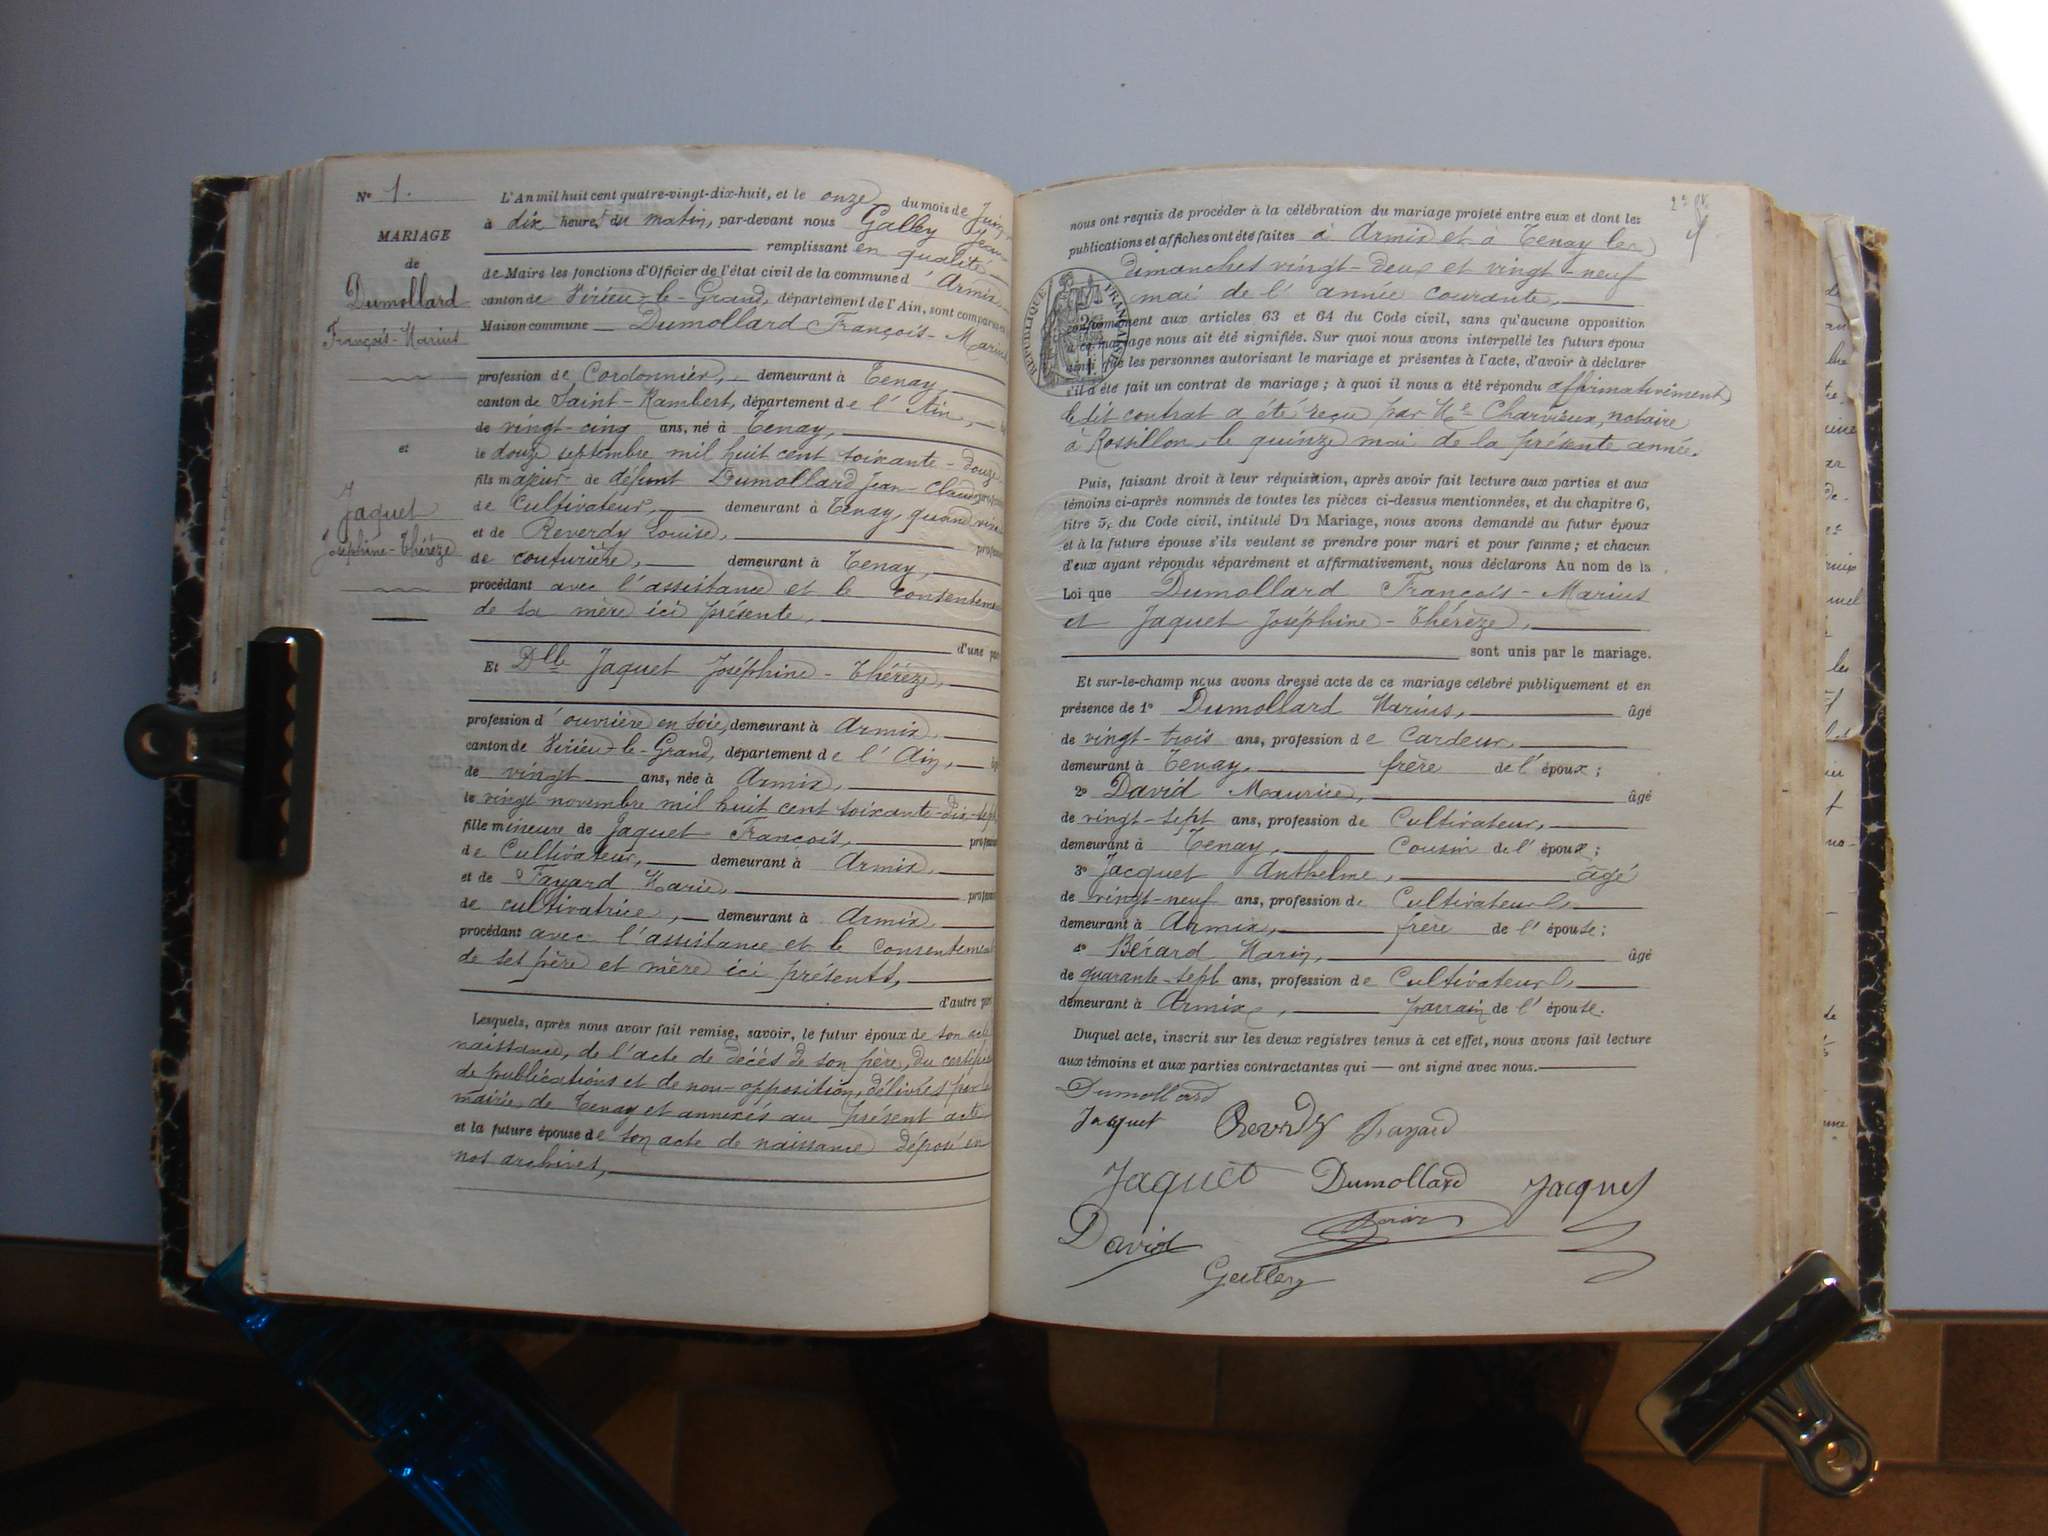 N° 1.
MARIAGE
de
Dumollard
François-Marius
et
Jaquet
Joséphine-Thérèze
L'An mil huit cent quatre-vingt-dix-huit, et le onze du mois de Juin
à dix heures du matin, par-devant nous Galley Jean
remplissant en qualité
de Maire les fonctions d'Officier de l'état civil de la commune d'Armix
canton de Virieu-le-Grand, département de l'Ain, sont comparus en
Maison commune Dumollard François-Marius
profession de Cordonnier, demeurant à Tenay,
canton de Saint-Rambert, département de l'Ain,
de vingt-cinq ans, né à Tenay,
le douze septembre mil huit cent soixante-douze,
fils majeur de défunt Dumollard Jean-Claude
de Cultivateur, demeurant à Tenay, quand
et de Reverdy Louise,
de couturière, demeurant à Tenay,
procédant avec l'assistance et le consentement
de sa mère ici présente,
d'une part
Et Dlle Jaquet Joséphine-Thérèze,
profession d'ouvrière en soie, demeurant à Armix,
canton de Virieu-le-Grand, département de l'Ain,
de vingt ans, née à Armix,
le vingt novembre mil huit cent soixante-dix-sept
fille mineure de Jaquet François, profession
de Cultivateur, demeurant à Armix,
et de Fayard Marie, profession
de cultivatrice, demeurant à Armix,
procédant avec l'assistance et le consentement
de ses père et mère ici présents,
d'autre part
Lesquels, après nous avoir fait remise, savoir, le futur époux de son acte
naissance, de l'acte de décès de son père, du certificat
de publications et de non-opposition, délivrés par la
mairie de Tenay et annexés au présent acte
et la future épouse de son acte de naissance déposé en
nos archives,
nous ont requis de procéder à la célébration du mariage projeté entre eux et dont les
publications et affiches ont été faites à Armix et à Tenay les
dimanches vingt-deux et vingt-neuf
mai de l'année courante,
RÉPUBLIQUE FRANÇAISE
conformément aux articles 63 et 64 du Code civil, sans qu'aucune opposition
à ce mariage nous ait été signifiée. Sur quoi nous avons interpellé les futurs époux
ainsi que les personnes autorisant le mariage et présentes à l'acte, d'avoir à déclarer
s'il a été fait un contrat de mariage ; à quoi il nous a été répondu affirmativement,
le dit contrat a été reçu par Me Charvieux, notaire
à Rossillon, le quinze mai de la présente année.
Puis, faisant droit à leur réquisition, après avoir fait lecture aux parties et aux
témoins ci-après nommés de toutes les pièces ci-dessus mentionnées, et du chapitre 6,
titre 5, du Code civil, intitulé Du Mariage, nous avons demandé au futur époux
et à la future épouse s'ils veulent se prendre pour mari et pour femme ; et chacun
d'eux ayant répondu séparément et affirmativement, nous déclarons Au nom de la
Loi que Dumollard François-Marius
et Jaquet Joséphine-Thérèze,
sont unis par le mariage.
Et sur-le-champ nous avons dressé acte de ce mariage célébré publiquement et en
présence de 1° Dumollard Marius, âgé
de vingt-trois ans, profession de Cardeur,
demeurant à Tenay, frère de l'époux ;
2° David Maurice, âgé
de vingt-sept ans, profession de Cultivateur,
demeurant à Tenay, Cousin de l'époux ;
3° Jacquet Anthelme, âgé
de vingt-neuf ans, profession de Cultivateur,
demeurant à Armix, frère de l'épouse ;
4° Bérard Marin, âgé
de quarante-sept ans, profession de Cultivateur,
demeurant à Armix, parrain de l'épouse.
Duquel acte, inscrit sur les deux registres tenus à cet effet, nous avons fait lecture
aux témoins et aux parties contractantes qui — ont signé avec nous.
Dumollard
Jaquet Reverdy Frayard
Jaquet Dumollard Jacquet
David
Galley